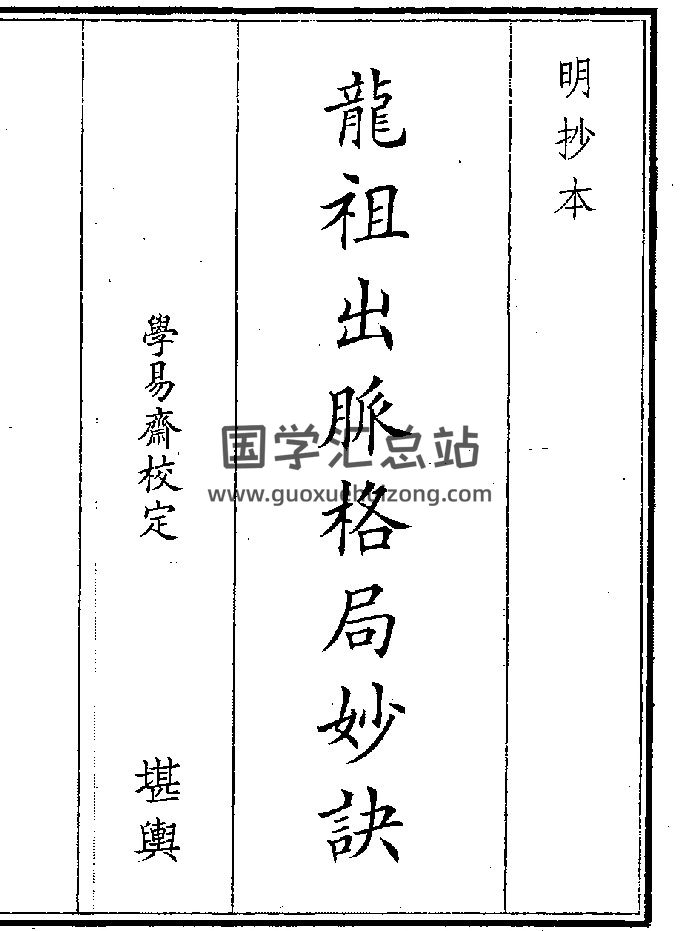 明抄本
龍祖出脈格局妙訣
學易齋校定
堪輿
国学汇总站
www.guoxuehuizong.com